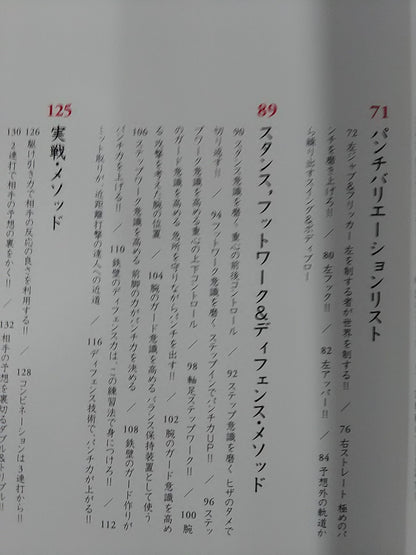 71
パンチバリエーションリスト
72 左ジャブ&フリッカー 左を制する者が世界を制する!! ／ 76 右ストレート 極めのパ
ンチを磨き上げろ!! ／ 80 左フック!! ／ 82 左アッパー!! ／ 84 予想外の軌道か
ら繰り出すスイング&ボディブロー
89
スタンス、フットワーク&ディフェンス・メソッド
90 スタンス意識を磨く 重心の前後コントロール ／ 92 ステップ意識を磨く ヒザのタメで
切り返す!! ／ 94 フットワーク意識を磨く ステップインでパンチ力UP!! ／ 96 ステッ
プワーク意識を高める 重心の上下コントロール ／ 98 軸足ステップワーク!! ／ 100 腕
のガード意識を高める 急所を守りながらパンチを出す!! ／ 102 腕のガード意識を高め
る 攻撃を考えた腕の位置 ／ 104 腕のガード意識を高める バランス保持装置として使う
106 ステップワーク意識を高める 前脚の力がパンチ力を決める ／ 108 鉄壁のガード作りが
パンチ力を上げる!! ／ 110 鉄壁のディフェンス力は、この練習法で身につけろ!! ／ 112
ミット取りが、近距離打撃の達人への近道 ／ 116 ディフェンス技術で、パンチ力が上がる!!
125
実戦・メソッド
126 駆け引き力を相手の反応の良さを利用する!! ／ 128 コンビネーションは3連打から!!
130 2連打で相手の予想の裏をかく!! ／ 132 相手の予想を裏切るダブル&トリプル!!